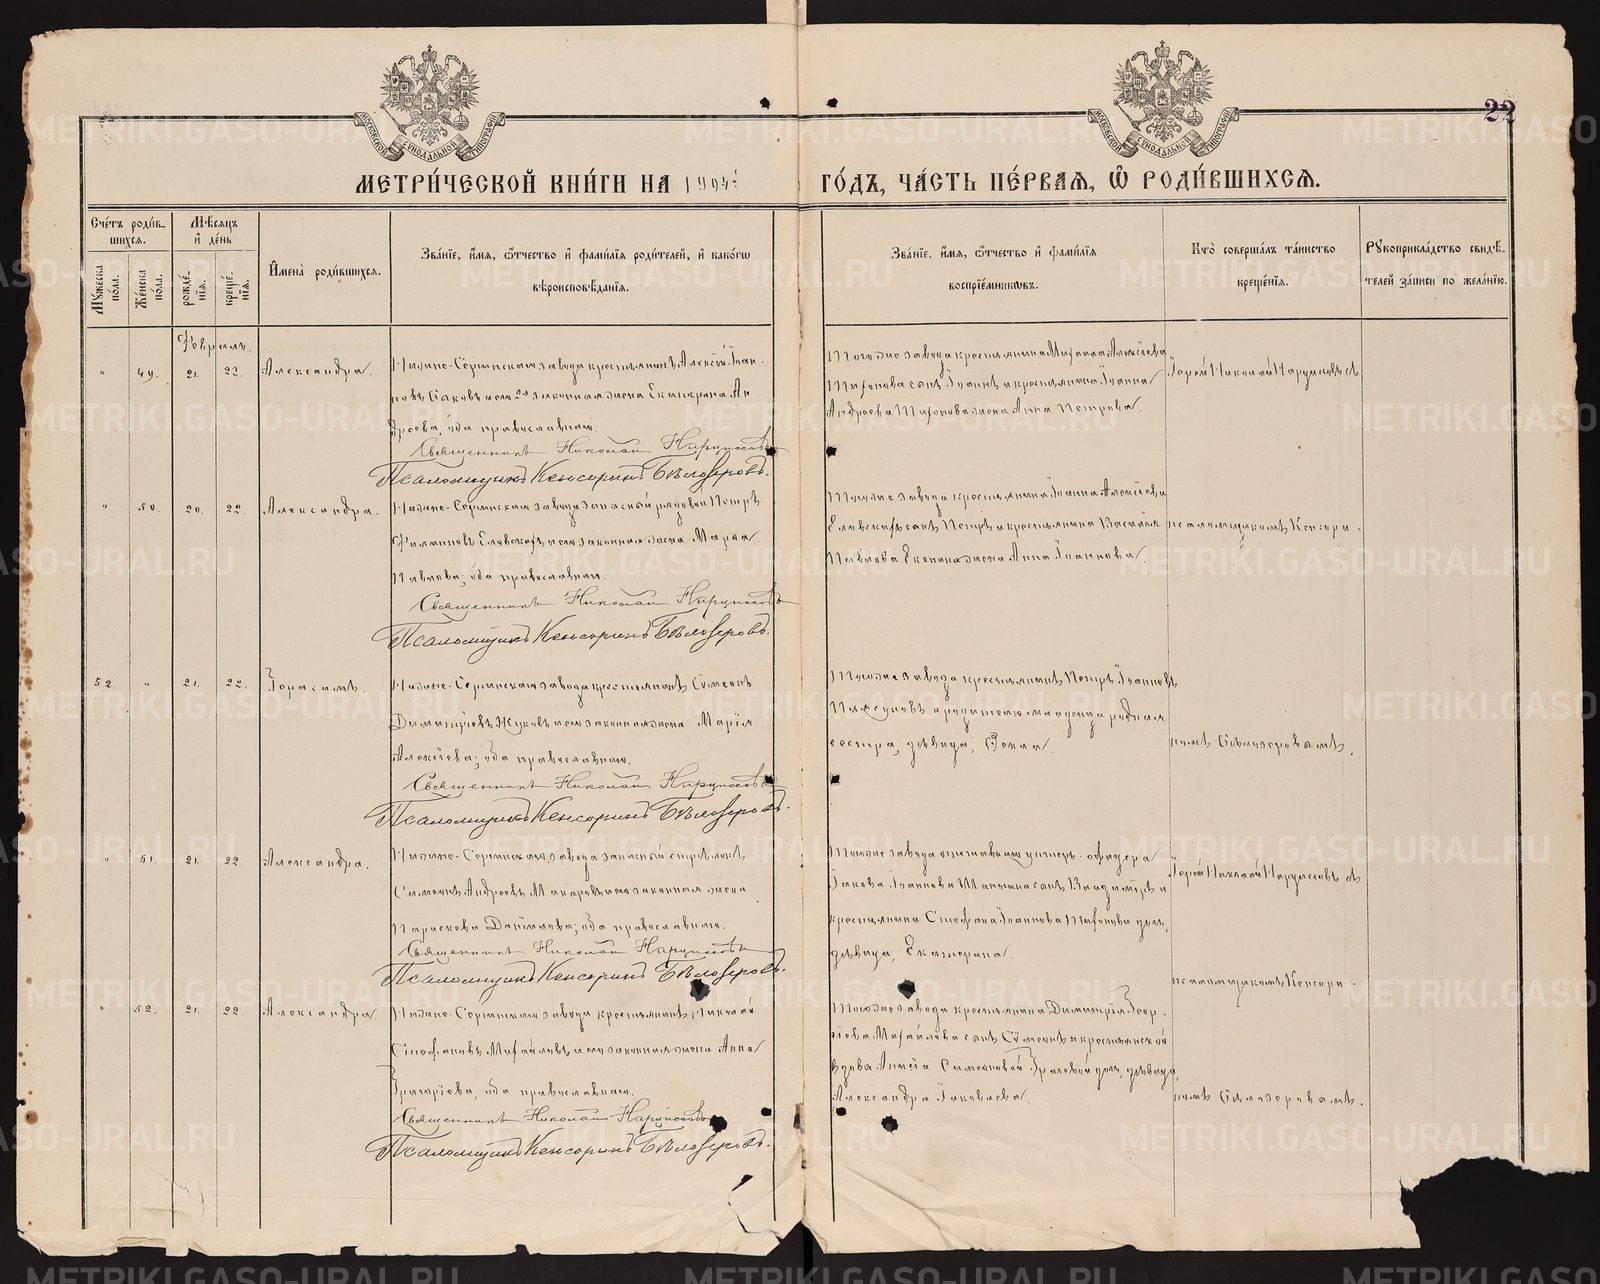 22
МОСКОВСКОЙ СУНОДАЛЬНОЙ ТИПОГРАФІИ
МОСКОВСКОЙ СУНОДАЛЬНОЙ ТИПОГРАФІИ
МЕТРИ́ЧЕСКОЙ КНИ́ГИ НА 1904й
ГО́ДЪ, ЧА́СТЬ ПЕ́РВАЯ, Ѽ РОДИ́ВШИХСЯ.
Сче́тъ роди́в-
шихся.
Му́жеска по́ла.
Же́нска по́ла.
Мѣ́сяцъ
и҆ де́нь
рожде́-
нія.
креще́-
нія.
И҆мена̀ роди́вшихся.
Зва́нїе, и҆́мя, ѻ҆́тчество и҆ фами́лїя роди́телей, и҆ како́гѡ
вѣроисповѣ́данїя.
Зва́нїе, и҆́мя, ѻ҆́тчество и҆ фами́лїя
воспрїе́мникѡвъ.
Кто̀ соверша́лъ та́инство
креще́нїя.
Рукоприкла́дство свидѣ́-
телей за́писи по жела́нїю.
Февраль.
" 49. 21. 22. Александра.
Нижне-Сергинскаго завода крестьянинъ Алексѣй Іоан-
новъ и его 2я законная жена Екатерина Ан
дреева, оба православные.
Священникъ Николай Нарциссовъ
Псаломщикъ Кенсоринъ Бѣлозеровъ.
Тогоже завода крестьянина Михаила Алексѣева
сынъ Іоаннъ и крестьянина Іоанна
Андреева жена Анна Петрова.
Іерей Николай Нарциссовъ съ
" 50. 20. 22. Александра.
Нижне-Сергинскаго завода запасный рядовой Петръ
Филиповъ и его законная жена Марѳа
Павлова; оба православные.
Священникъ Николай Нарциссовъ
Псаломщикъ Кенсоринъ Бѣлозеровъ.
Тогоже завода крестьянина Іоанна Алексѣева
сынъ Петръ и крестьянина Василія
Павлова жена Анна Іоаннова.
псаломщикомъ Кенсори-
52. " 21. 22. Герасимъ.
Нижне-Сергинскаго завода крестьянинъ Сѵмеонъ
Димитріевъ Жуковъ и его законная жена Марія
Алексѣева; оба православные.
Священникъ Николай Нарциссовъ
Псаломщикъ Кенсоринъ Бѣлозеровъ.
Тогоже завода крестьянинъ Петръ Іоанновъ
и родителю младенца родная
сестра, дѣвица, Ѳекла.
номъ Бѣлозеровымъ.
" 51. 21. 22. Александра.
Нижне-Сергинскаго завода запасный стрѣлокъ
Симеонъ Андреевъ Макаровъ и его законная жена
Параскева Даніилова; оба православные.
Священникъ Николай Нарциссовъ
Псаломщикъ Кенсоринъ Бѣлозеровъ.
Тогоже завода отставнаго унтеръ-офицера
Іакова Іоаннова сынъ Владиміръ и
крестьянина Стефана Іоаннова дочь,
дѣвица, Екатерина.
Іерей Николай Нарциссовъ съ
псаломщикомъ Кенсори-
" 52. 21. 22. Александра
Нижне-Сергинскаго завода крестьянинъ Николай
Стефановъ Михайловъ и его законная жена Анна
Григоріева, оба православные.
Священникъ Николай Нарциссовъ
Псаломщикъ Кенсоринъ Бѣлозеровъ.
Тогоже завода крестьянина Димитрія Геор-
гіева Михайлова сынъ Сѵмеонъ и крестьянской
вдовы Симеоновой дочь, дѣвица,
Александра Іаковлева.
номъ Бѣлозеровымъ.
METRIKI.GASO-URAL.RU